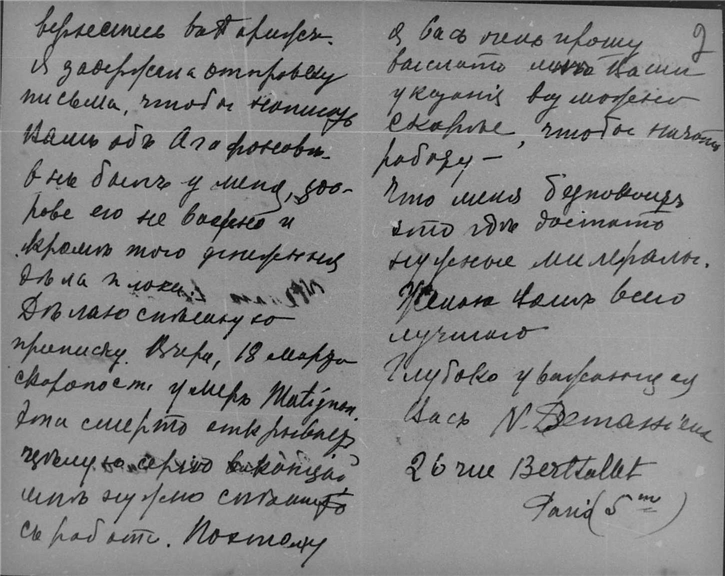 вернетесь въ Парижъ.
Я задержала отправку
письма, чтобы написать
Вамъ объ Агафонове.
В не былъ у меня, здо-
ровье его не важно и
кромѣ того денежныя
дѣла плохи.
Дѣлаю спѣшную
приписку. Вчера, 18 марта
скоропост. умеръ Matignon.
Эта смерть открываетъ
цѣлую серію вакансій
мнѣ нужно спѣшить
съ работ. Поэтому
2
я Васъ очень прошу
выслать мнѣ Ваши
указанія возможно
скорѣе, чтобы начать
работу —
Что меня безпокоитъ
это гдѣ достать
нужные минералы.
Желаю Вамъ всего
лучшаго
Глубоко уважающая
Васъ N. Demassieux
26 rue Berthollet
Paris (5me)